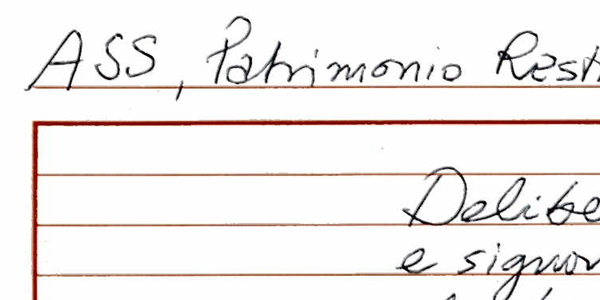 ASS, Patrimonio Rest
Delibe
e signor